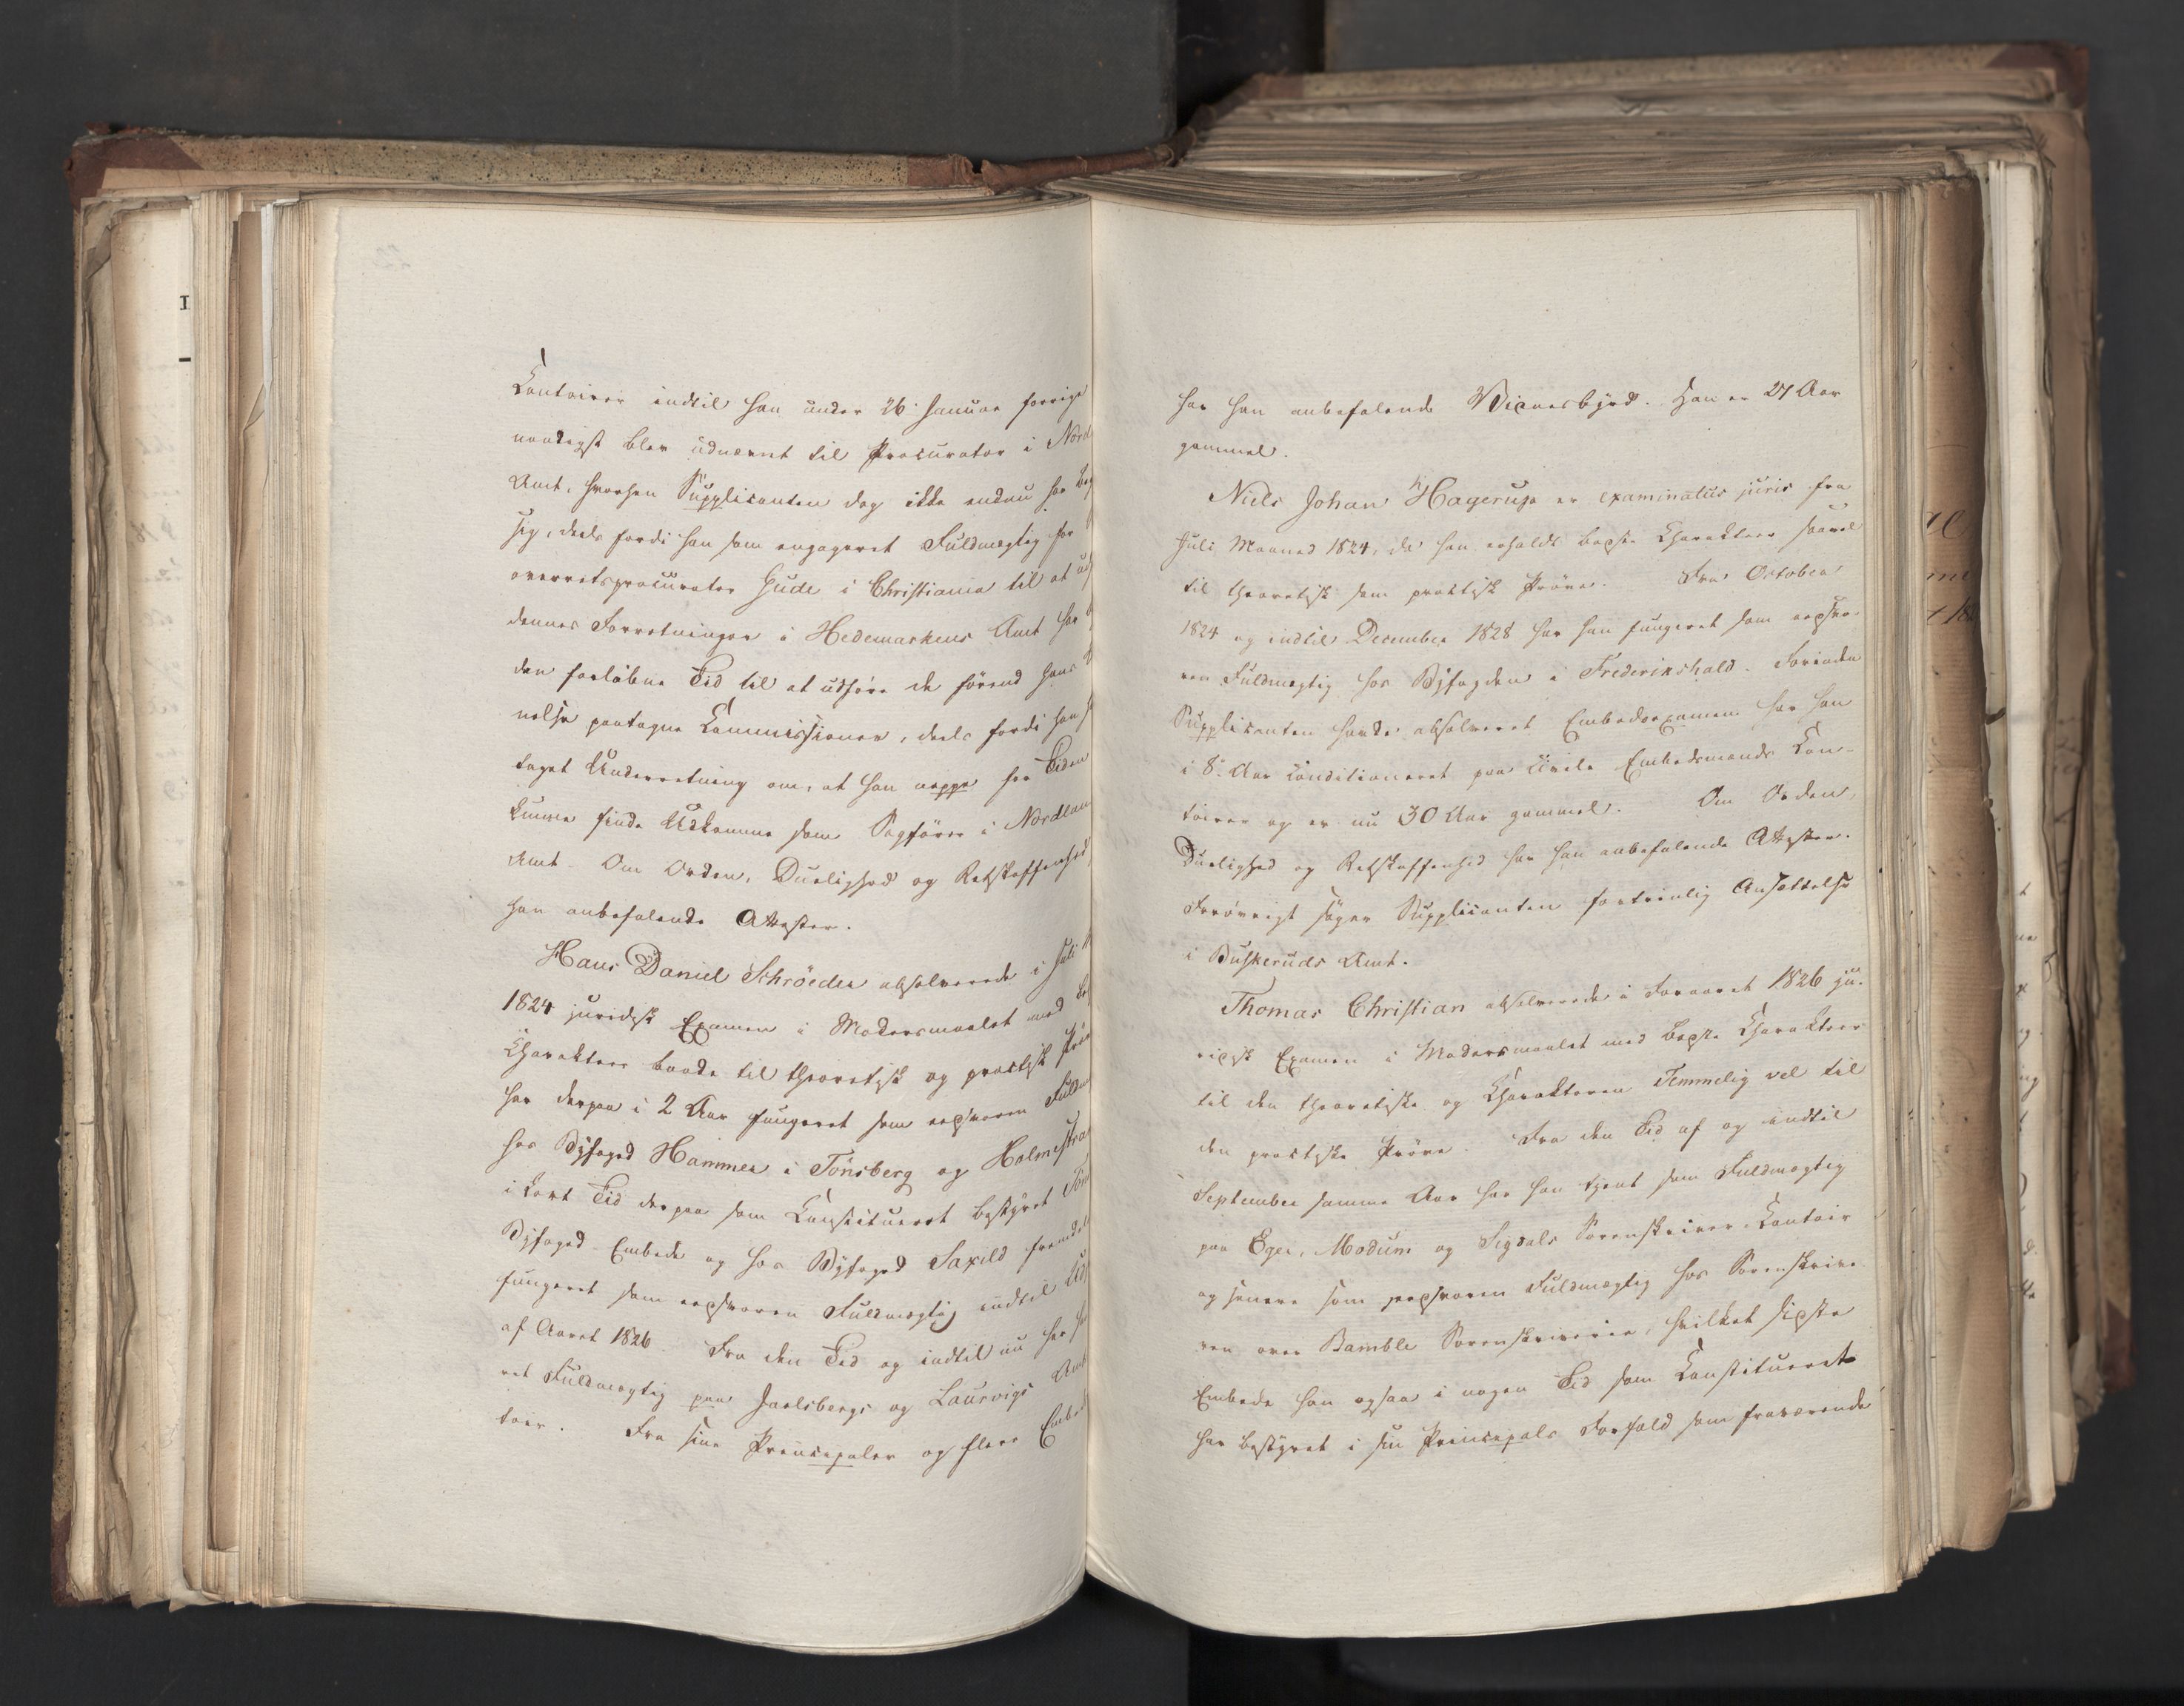 Contoirer indtil han under 26 Januar forrige
naadigst blev udnævnt til Procurator i Nord
Amt, hvorhen Supplicanten dog ikke endnu har beg
sig, deels fordi han som engageret Fuldmægtig for
overretsprocurator Gude i Christiania til at ud
dennes Forretninger i Hedemarkens Amt har
den forløbne Tid til at udføre de førend hans
nelse paatagne Commissioner, deels fordi han
taget Underretning om, at han neppe for Tiden
kunne finde Udkomme som Sagfører i Nordlan
Amt. Om Orden, Duelighed og Retskaffenhed
han anbefalende Attester.
Hans Daniel Schröeder absolverede i Juli
1824 juridisk Examen i Modersmaalet med be
Charakteer baade til theoretisk og practisk Prø
har derpaa i 2 Aar fungeret som eedsvoren Fuldm
hos Byfoged Hammer i Tönsberg og Holmestra
i kort Tid derpaa som Constitueret bestyret Tön
Byfoged-Embede og hos Byfoged Saxild fremdel
fungeret som eedsvoren Fuldmægtig indtil Ud
af Aaret 1826. Fra den Tid og indtil nu har
ret Fuldmægtig paa Jarlsbergs og Laurvigs Amt
toir. Fra sine Principaler og flere Embed
har han anbefalende Vidnesbyrd. Han er 27 Aar
gammel.
Niels Johan Hagerup er examinatus juris fra
Juli Maaned 1824, da han erholdt bedste Charakteer saavel
til theoretisk som praktisk Prøve. Fra October
1824 og indtil December 1828 har han fungeret som eedsvo-
ren Fuldmægtig hos Byfogden i Frederikshald. Forinden
Supplicanten havde absolveret Embedsexamen har han
i 8 Aar Conditioneret paa Civile Embedsmænds Con-
toirer og er nu 30 Aar gammel. Om Orden,
Duelighed og Retskaffenhed har han anbefalende Attester.
Forøvrigt søger Supplicanten fortrinlig Ansættelse
i Buskeruds Amt.
Thomas Christian absolverede i Foraaret 1826 ju-
ridisk Examen i Modersmaalet med bedste Charakteer
til den theoretiske og Charakteren Temmelig vel til
den practiske Prøve. Fra den Tid af og indtil
September samme Aar har han tjent som Fuldmægtig
paa Eger, Modum og Sigdals Sorenskriver-Contoir
og senere som eedsvoren Fuldmægtig hos Sorenskrive-
ren over Bamble Sorenskriverie, hvilket sidste
Embede han ogsaa i nogen Tid som Constitueret
har bestyret i sin Principals Forfald som fraværende